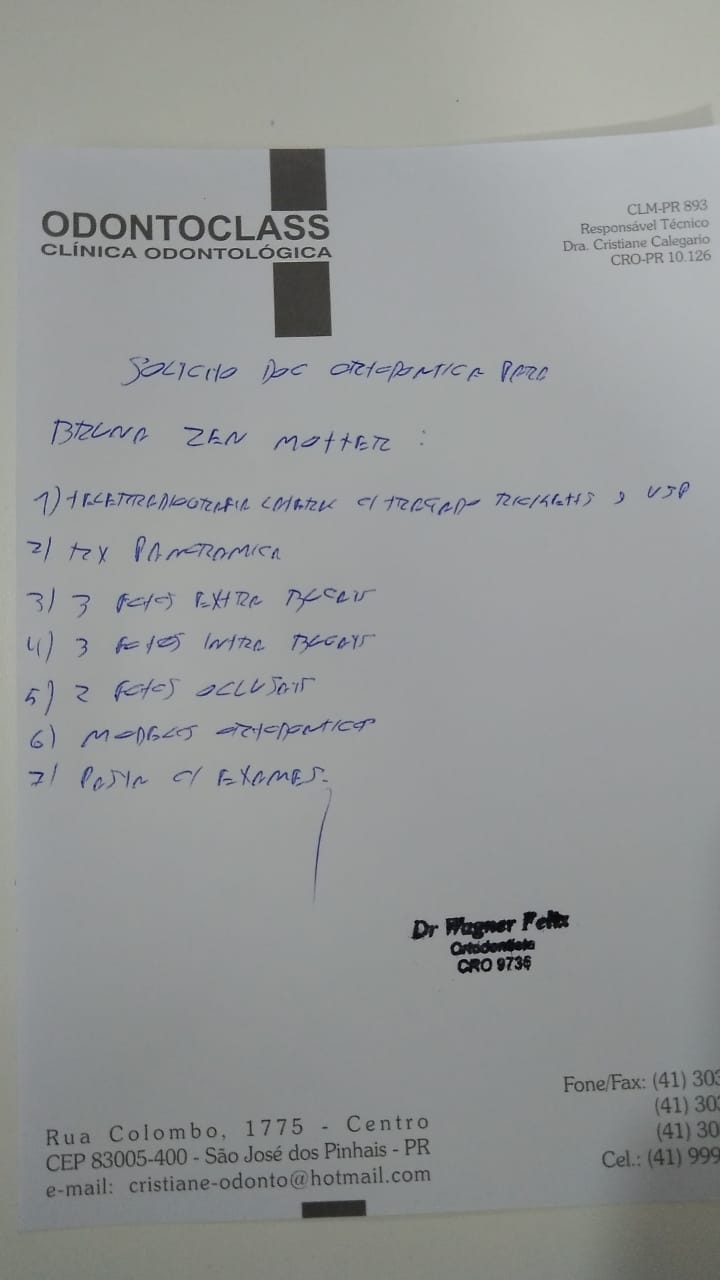 ODONTOCLASS
CLÍNICA ODONTOLÓGICA
CLM-PR 893
Responsável Técnico
Dra. Cristiane Calegario
CRO-PR 10.126
SOLICITO DOC ORTODONTICA PARA
BRUNA ZEN MOTTER :
1) TELERRADIOGRAFIA LATERAL C/ TRAÇADO RICKETTS , USP
2) RX PANORAMICA
3) 3 FOTOS EXTRA BUCAIS
4) 3 FOTOS INTRA BUCAIS
5) 2 FOTOS OCLUSAIS
6) MODELOS ORTODONTICOS
7) PASTA C/ EXAMES.
Dr Wagner Felix
Ortodontista
CRO 9736
Fone/Fax: (41) 303
(41) 303
(41) 30
Cel.: (41) 999
Rua Colombo, 1775 - Centro
CEP 83005-400 - São José dos Pinhais - PR
e-mail: cristiane-odonto@hotmail.com